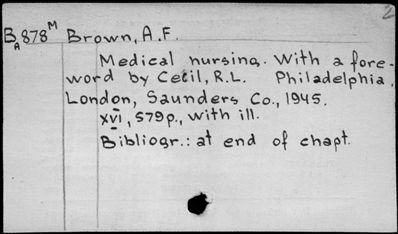 2
BA878M Brown, A.F.
Medical nursing. With a fore-
word by Cecil, R.L. Philadelphia,
London, Saunders Co., 1945.
xvi, 579p., with ill.
Bibliogr.: at end of chapt.